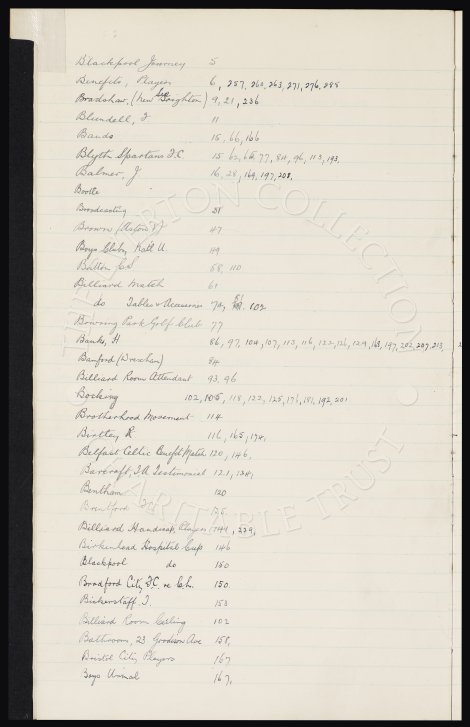 Blackpool Journey 5
Benefits, Players 6, 257, 260, 263, 271, 276, 288
Bradshaw, (New Boughton) 9, 21, 236
Blundell, J 11
Bands 15, 66, 166
Blyth Spartans F.C. 15 62, 65, 77, 84, 96, 113, 193,
Balmer, J 16, 28, 169, 197, 208,
Bootle
Broadcasting 31
Browns 47
Boys Clubs, Natl U. 49
Bolton 58, 110
Billiard Match 61
do Tables & Accessories 74, 102
Bowring Park Golf Club 77
Banks, H 86, 97, 104, 107, 113, 116, 122, 126, 129, 163, 197, 202, 207, 213,
Banford (Wrexham) 84
Billiard Room Attendant 93, 96
Bocking 102, 105, 118, 122, 125, 176, 181, 192, 201
Brotherhood Movement 114
116, 165, 174,
Belfast Celtic Benefit Match 120, 146,
Barcroft, Testimonial 121, 134,
Bentham 120
Brentford
Billiard Handicap, Players 144, 229,
Birkenhead Hospital Cup 146
Blackpool do 150
Bradford City F.C. re Ch. 150.
Bickerstaff J. 153
Billiard Room Ceiling 102
Bathroom, 23 Goodison Ave 158,
Bristol City Players 167
Boys 167,
COLLECTION
CHARITABLE TRUST